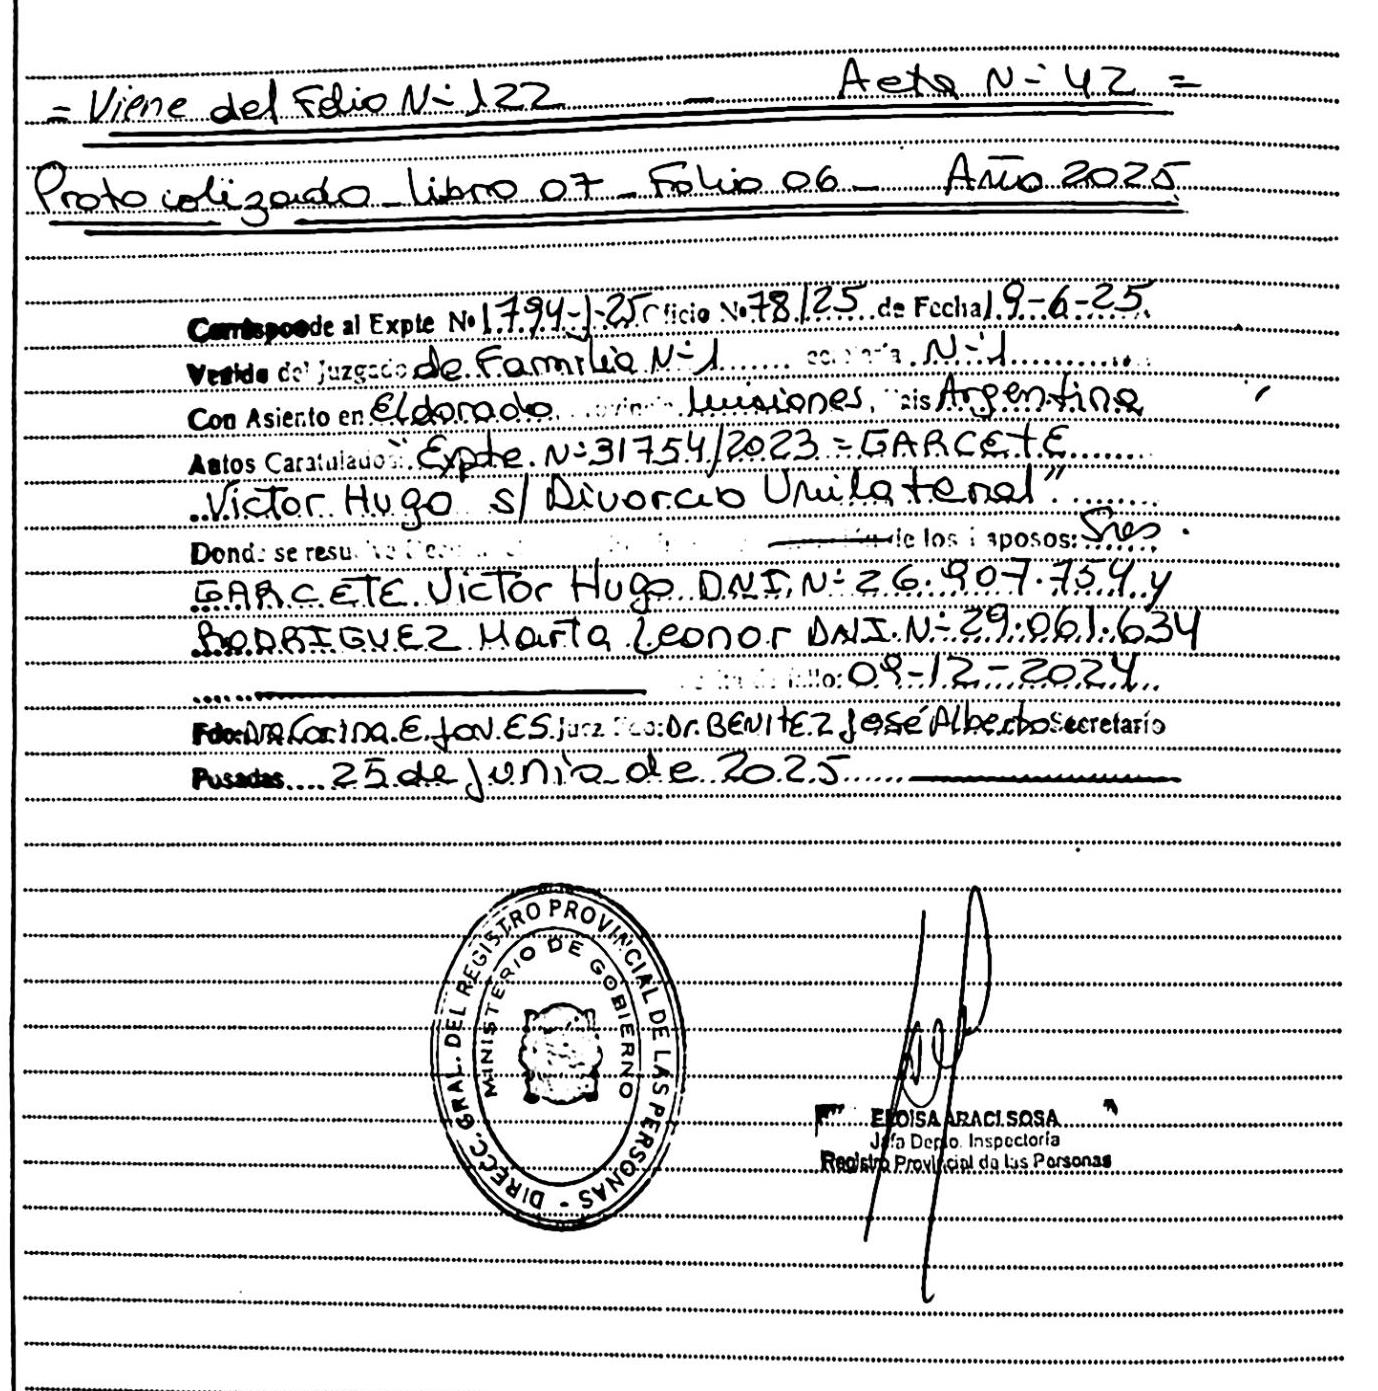 = Viene del Folio N° 122 — Acta N° 42 =
Protocolizado - Libro 07 - Folio 06 - Año 2025
Corresponde al Expte Nº 1794-J-25 Oficio Nº 78/25 de Fecha 19-6-25
Venido del Juzgado de Familia N° 1 Secretaría N° 1
Con Asiento en Eldorado Provincia Misiones, País Argentina
Autos Caratulados: "Expte. N° 31754/2023 = GARCETE
Victor Hugo s/ Divorcio Unilateral"
Donde se resuelve de los Esposos: Sres.
GARCETE Victor Hugo DNI. N° 26.907.754 y
RODRIGUEZ Marta Leonor DNI. N° 29.061.634
fallo: 09-12-2024
Fdo: Dra Corina E. JONES Juez Fdo: Dr. BENITEZ José Alberto Secretario
Posadas 25 de junio de 2025
DIRECC. GRAL. DEL REGISTRO PROVINCIAL DE LAS PERSONAS -
MINISTERIO DE GOBIERNO
ELOISA ARACI SOSA
Jefa Depto. Inspectoría
Registro Provincial de las Personas